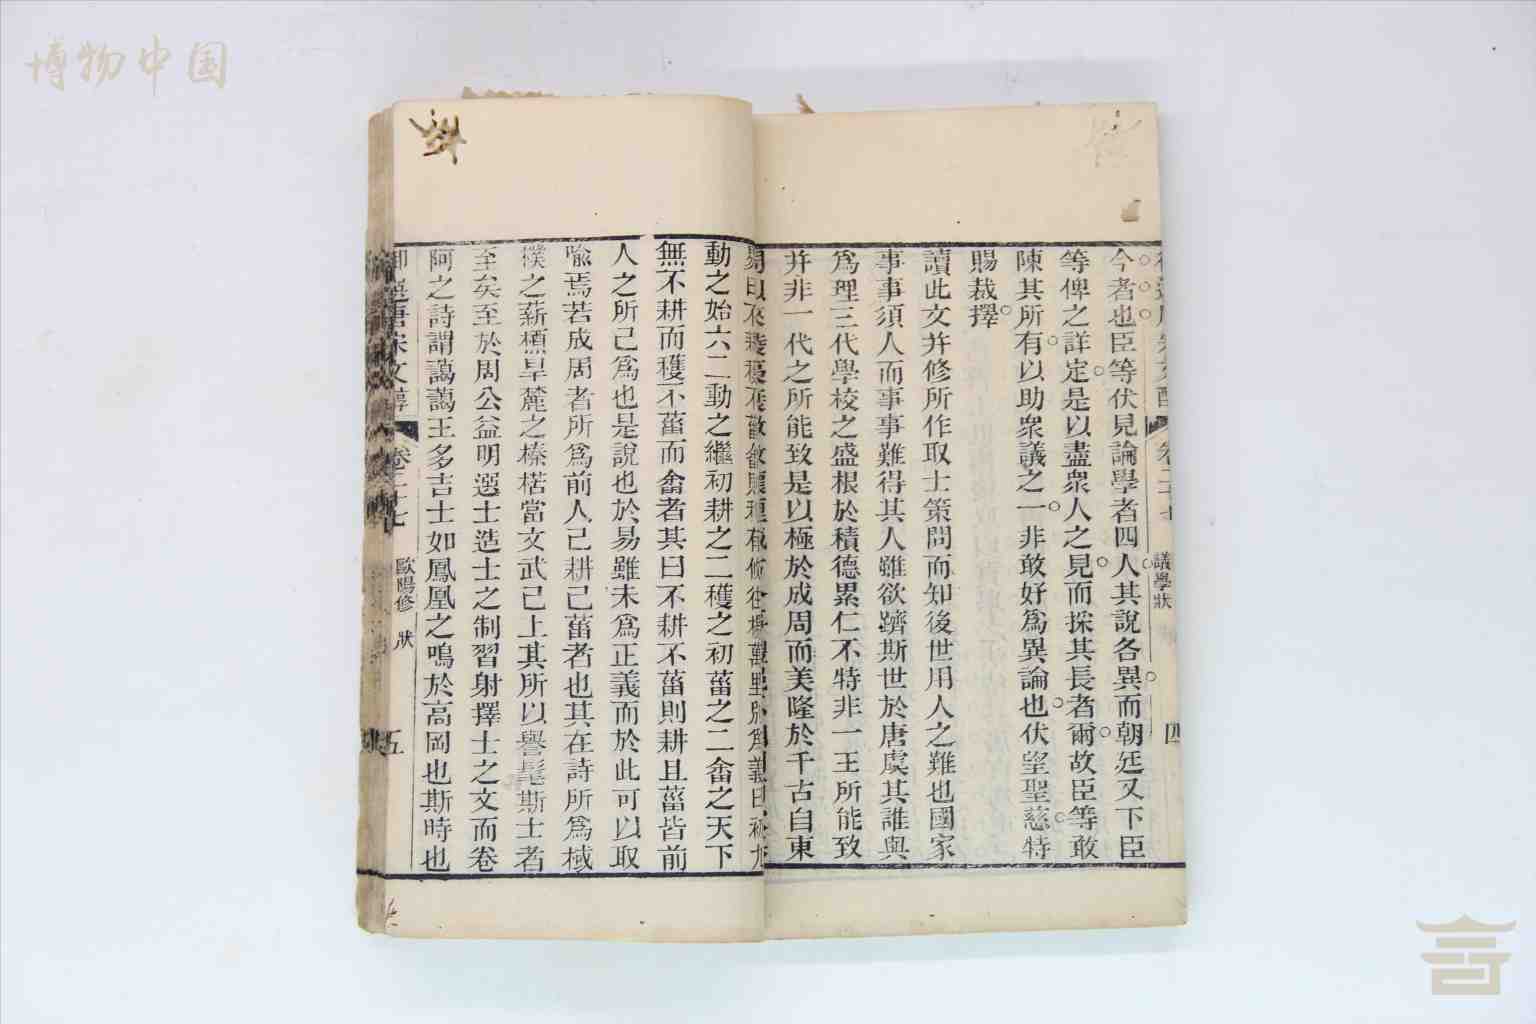 博物中国
議學狀
四
今者也臣等伏見論學者四人其說各異而朝廷又下臣
等俾之詳定是以盡衆人之見而採其長者爾故臣等敢
陳其所有以助衆議之一非敢好爲異論也伏望聖慈特
賜裁擇
讀此文并修所作取士策問而知後世用人之難也國家
事事須人而事事難得其人雖欲躋斯世於唐虞其誰與
爲理三代學校之盛根於積德累仁不特非一王所能致
并非一代之所能致是以極於成周而美隆於千古自東
動之始六二動之繼初耕之二穫之初菑之二畬之天下
無不耕而穫不菑而畬者其曰不耕不菑則耕且菑皆前
人之所已爲也是說也於易雖未爲正義而於此可以取
喻焉若成周者所爲前人已耕已菑者也其在詩所爲棫
樸之薪槱旱麓之榛楛當文武已上其所以譽髦斯士者
至矣至於周公益明選士造士之制習射擇士之文而卷
阿之詩謂藹藹王多吉士如鳳凰之鳴於高岡也斯時也
御選唐宋文醇 卷二十七 歐陽修 狀 五